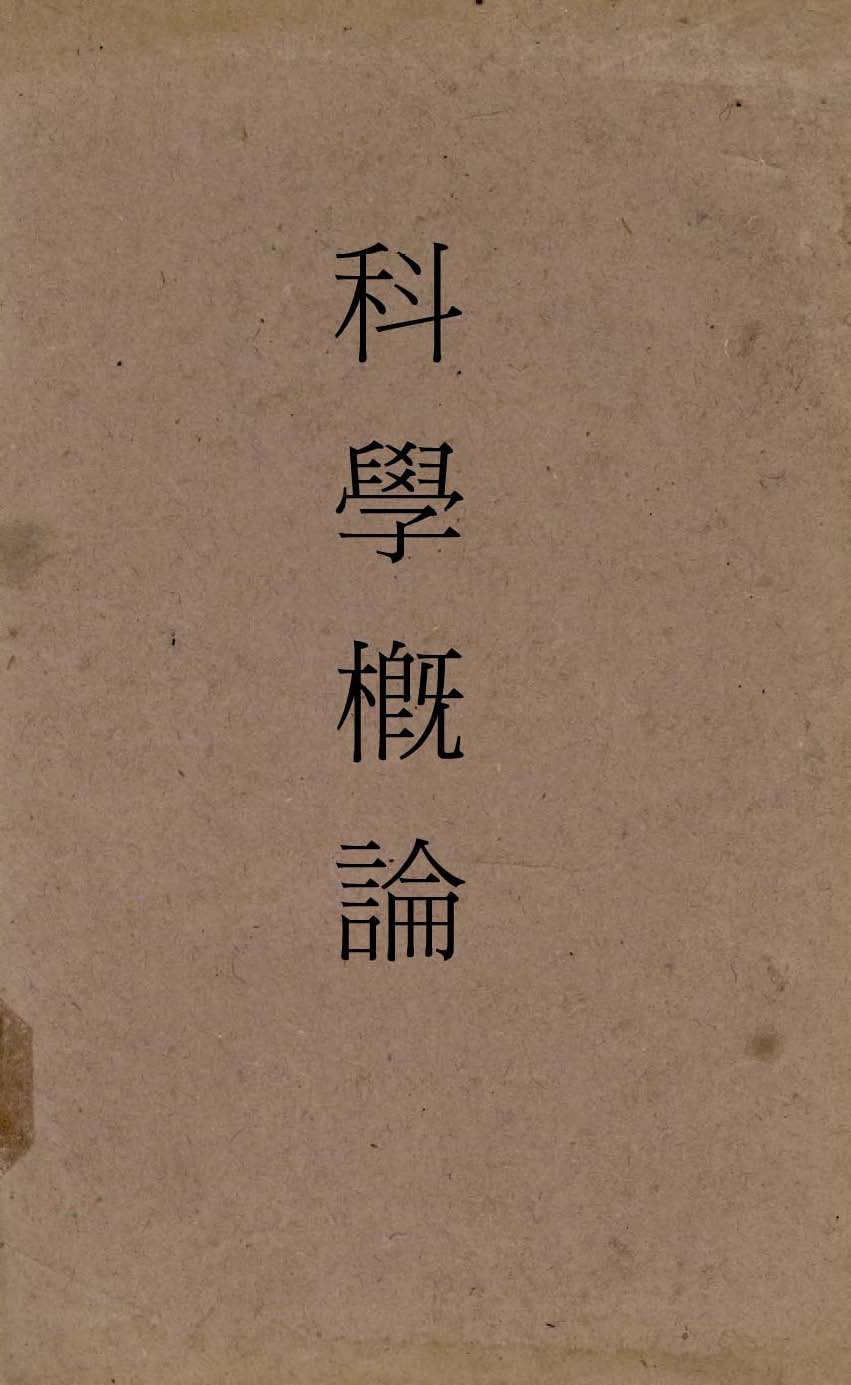 科學概論